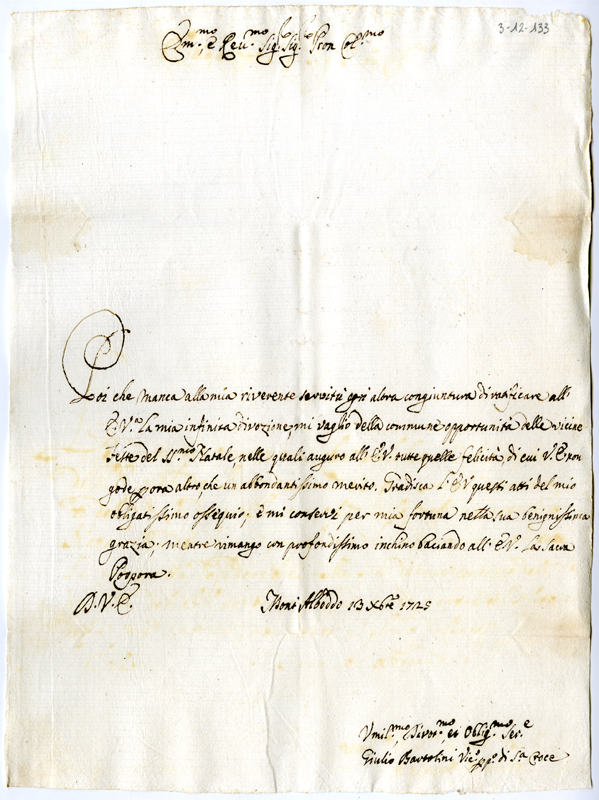 3-12-133
Em.mo, e Reu.mo Sig.re Sig.re Pron Col.mo
Poi che manca alla mia riverente servitù ogni altra congiuntura di ratificare all'
E.V.a la mia infinita divozione, mi vaglio della commune opportunità delle vicine
Feste del SS.mo Natale, nelle quali auguro all'E.V. tutte quelle felicità di cui V.E. non
gode p ora altro, che un abbondantissimo merito. Gradisca l'E.V. questi atti del mio
obligatissimo ossequio; e mi conservi per mia fortuna nella sua benignissima
grazia, mentre rimango con profondissimo inchino baciando all'E.V. la Sacra
Porpora.
D.V.E. Mont'Alboddo 13 Xbre 1725
Vmil.mo, Divot.mo et Oblig.mo Ser.e
Giulio Bartolini Vic.o pp.o di S.a Croce